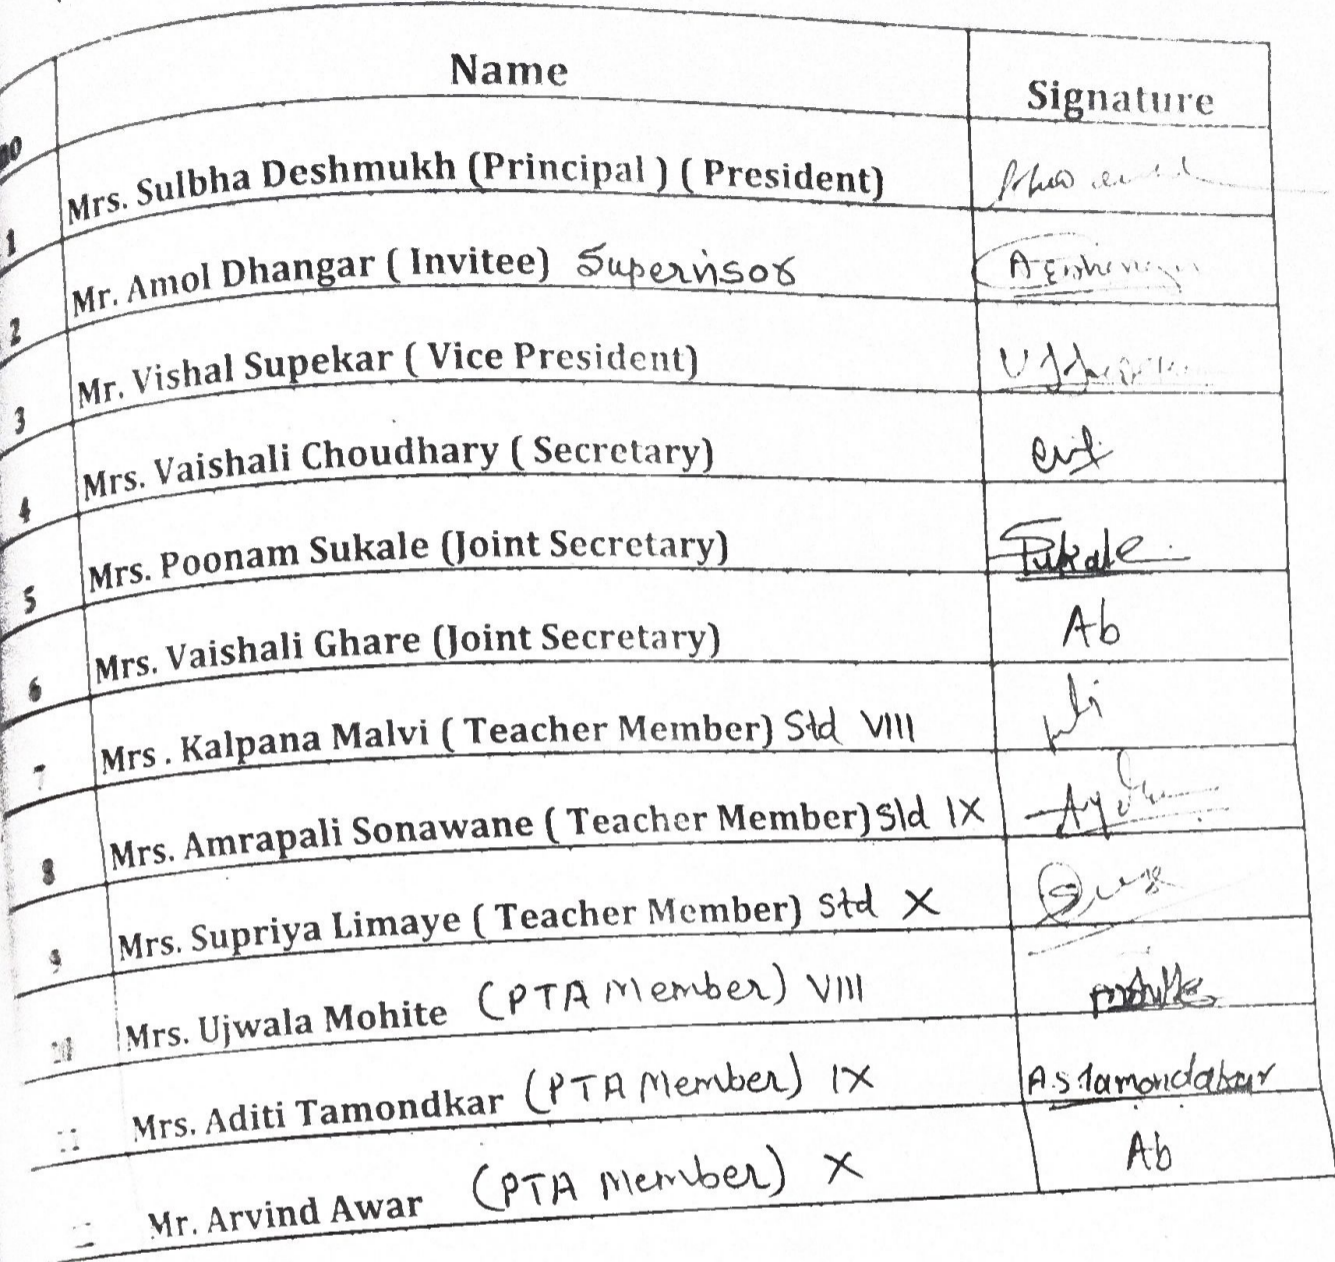 no Name Signature
1 Mrs. Sulbha Deshmukh (Principal ) ( President)
2 Mr. Amol Dhangar ( Invitee) Supervisor
3 Mr. Vishal Supekar ( Vice President)
4 Mrs. Vaishali Choudhary ( Secretary)
5 Mrs. Poonam Sukale (Joint Secretary) Pukale
6 Mrs. Vaishali Ghare (Joint Secretary) Ab
7 Mrs . Kalpana Malvi ( Teacher Member) Std VIII
8 Mrs. Amrapali Sonawane ( Teacher Member) Std IX
9 Mrs. Supriya Limaye ( Teacher Member) Std X
10 Mrs. Ujwala Mohite (PTA Member) VIII
11 Mrs. Aditi Tamondkar (PTA Member) IX A.S.Tamondakar
Mr. Arvind Awar (PTA Member) X Ab